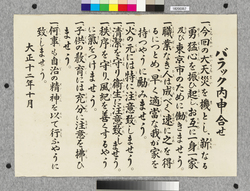 バラック内申合せ
一、今回の大天災を機とし、新なる
勇猛心を振ひ起しお互に一身一家
及び東京市のために働きませう。
一、職業なき人が成るべく速に之を得
るにつとめ、又適當な我が家を
持つやうに励みませう。
一、火の元には特に注意致しませう。
一、清潔を守り衛生に注意致しませう。
一、秩序を守り、風紀を善くするやう
に氣をつけませう。
一、子供の教育には充分に注意を拂ひ
ませう。
一、何事も自治の精神を以て行ふやうに
致しませう。
大正十二年十月